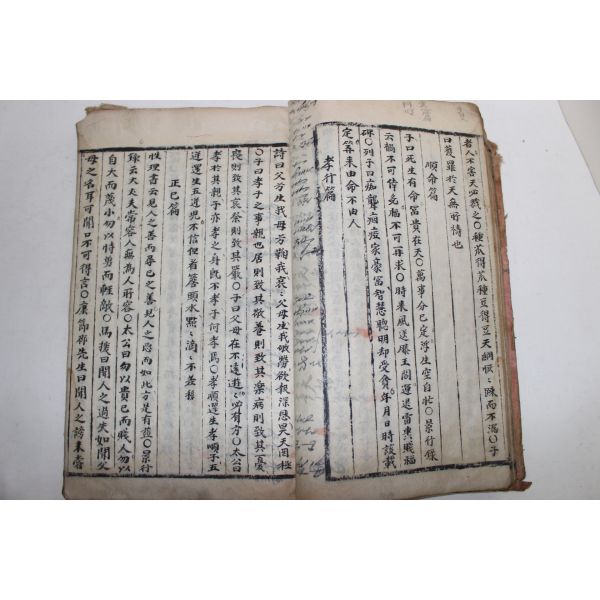 者人不害天必戮之○種瓜得瓜種豆得豆天網恢〻踈而不漏○子
曰獲罪於天無所禱也
順命篇
子曰死生有命富貴在天○萬事分已定浮生空自忙○景行錄
云禍不可倖免福不可再求○時来風送滕王閣運退雷轟賤福
碑○列子曰痴聾痼瘂家豪富智慧聰明却受貧年月日時該載
定算来由命不由人
孝行篇
詩曰父兮生我母兮鞠我哀〻父母生我劬勞欲報深恩昊天罔極
○子曰孝子之事親也居則致其敬養則致其樂病則致其憂
喪則致其哀祭則致其嚴○子曰父母在不遠遊〻必有方○太公曰
孝於其親子亦孝之身旣不孝子何孝焉○孝順還生孝順子五
逆還生五逆兒不信但看簷頭水點〻滴〻不差移
正己篇
性理書云見人之善而尋己之善見人之惡而如此方是有益○景行
錄云大丈夫當容人無爲人所容○太公曰勿以貴己而賤人勿以
自大而蔑小勿以恃勇而輕敵○馬援曰聞人之過失如聞父
母之名耳可聞口不可得言○康節邵先生曰聞人之謗未嘗